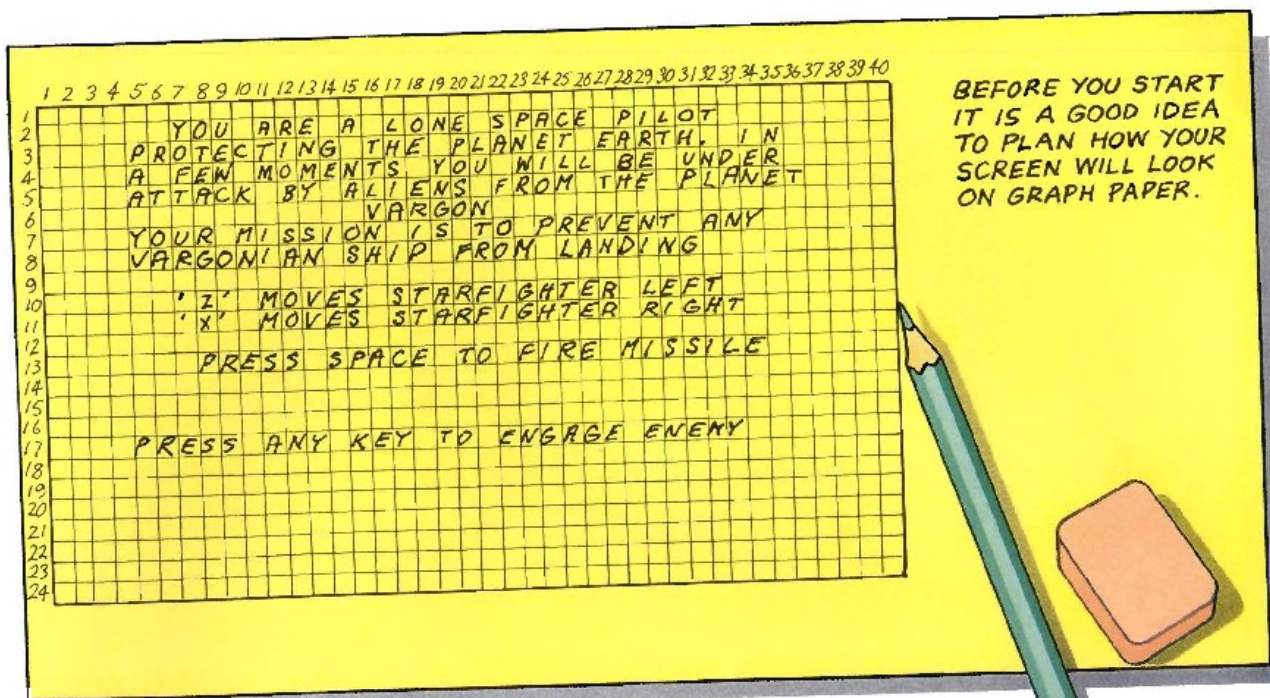 1 2 3 4 5 6 7 8 9 10 11 12 13 14 15 16 17 18 19 20 21 22 23 24 25 26 27 28 29 30 31 32 33 34 35 36 37 38 39 40
1
2
3
4
5
6
7
8
9
10
11
12
13
14
15
16
17
18
19
20
21
22
23
24
YOU ARE A LONE SPACE PILOT
PROTECTING THE PLANET EARTH. IN
A FEW MOMENTS YOU WILL BE UNDER
ATTACK BY ALIENS FROM THE PLANET
VARGON
YOUR MISSION IS TO PREVENT ANY
VARGONIAN SHIP FROM LANDING
'Z' MOVES STARFIGHTER LEFT
'X' MOVES STARFIGHTER RIGHT
PRESS SPACE TO FIRE MISSILE
PRESS ANY KEY TO ENGAGE ENEMY
BEFORE YOU START
IT IS A GOOD IDEA
TO PLAN HOW YOUR
SCREEN WILL LOOK
ON GRAPH PAPER.